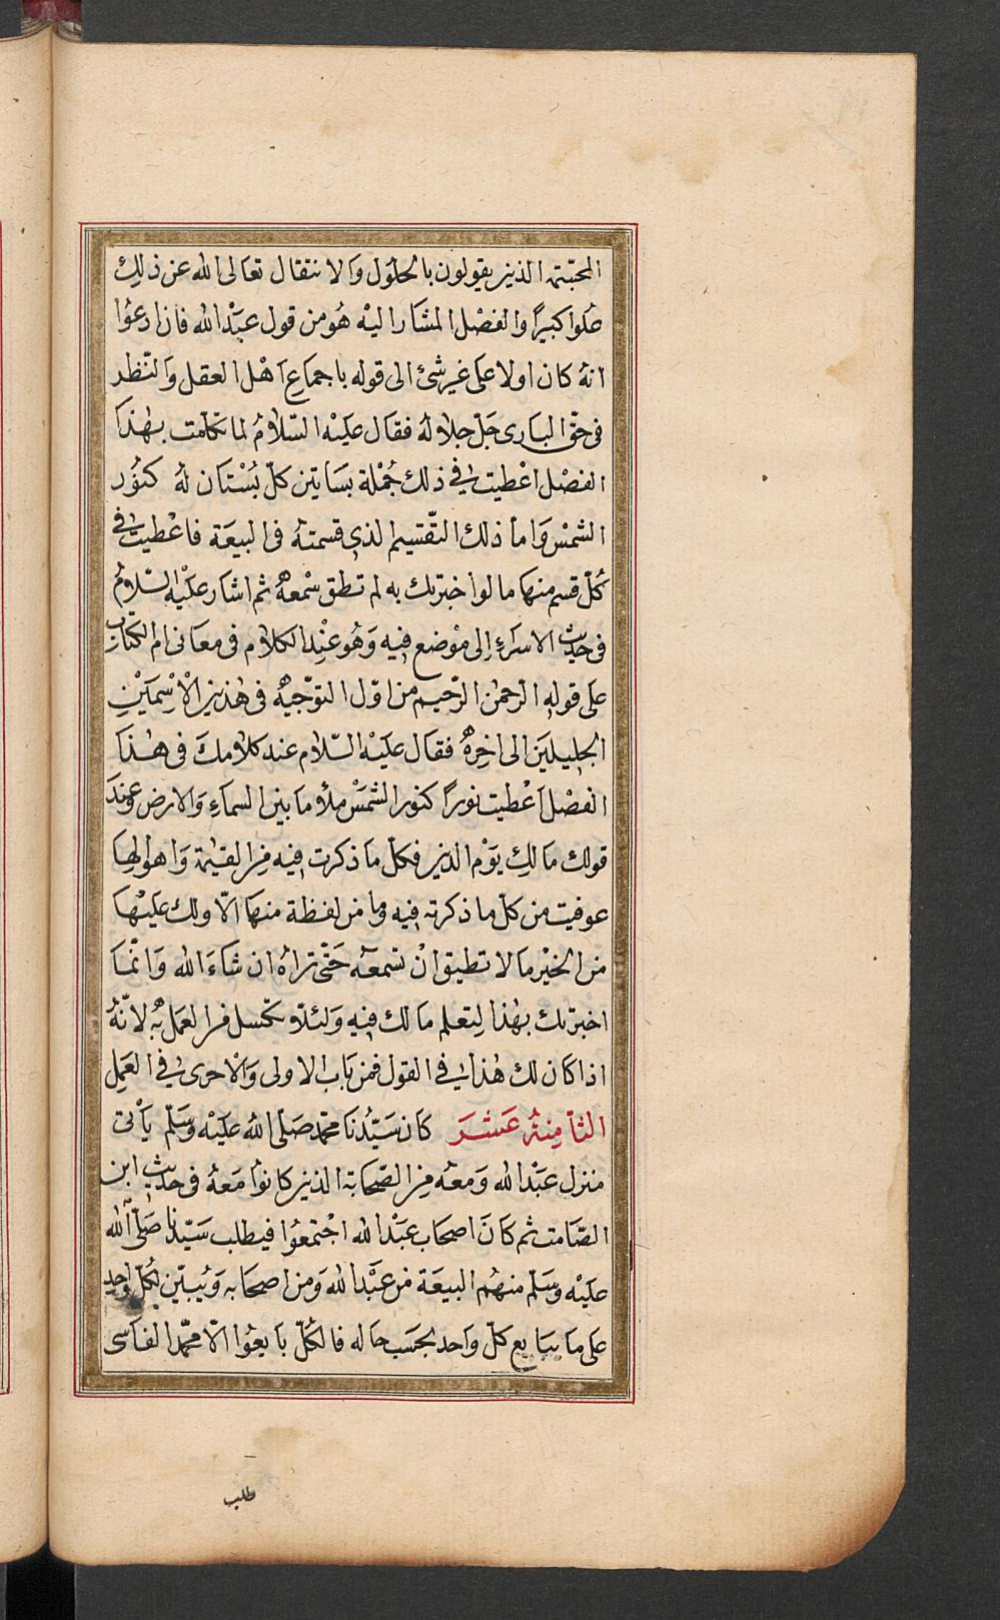 المحبّتة الذين يقولون بالحلول والانتقال تعالى الله عن ذلك
علوا كبيرًا والفصل المشار اليه هو من قول عبد الله فان ادعوا
انه كان اولا على غير شئ الى قوله باجماع اهل العقل والنّظر
فى حق البارى جلّ جلاله فقال عليه السّلام لما تكلمت بهذا
الفصل اعطيت فى ذلك جُملة بساتين كلّ بُستان له كنُور
الشمس وَاما ذلك التّقسيم الذى قسمته فى البيعَة فاعطيت فى
كُلّ قسم منها ما لو اخبرتك به لم تطق سمعهُ ثم اشار عليه السّلام
فى حديث الاسراء الى موضع فيه وَهو عند الكلام فى معانى ام الكتاب
على قوله الرّحمٰن الرّحيم من اوّل التوّجيه فى هٰذين الاسمَين
الجليلين الى اخره فقال عليه السّلام عند كلامك فى هٰذا
الفصل اعطيت نوراً كنور الشمس ملأ ما بين السماء والارض وعند
قولك مالك يوم الدين فكلّ ما ذكرت فيه من القيٰمة وَاهوالها
عوفيت من كلّ ما ذكرته فيه وما من لفظة منها الّا ولك عليها
من الخير ما لا تطيق انْ تسمعه حَتّى تراه ان شاءَ الله وَانّما
اخبرتك بهٰذا لِتعلم ما لك فيه وَلئلّا تكسل فى العمل به لانّه
اذا كان لك هٰذا فى القول فمن باب الاولى وَالاحرى فى العَمل
الثّامِنة عَشرَ كان سَيّدُنا محمّد صَلّى الله عليْه وَسَلّم يأتى
منزل عبْد الله وَمعه من الصّحابة الذين كانوا مَعهُ فى حديث ابن
الصّامت ثم كانَ اصحاب عبْد الله اجْتمعُوا فيطلب سَيّدنا صَلّى الله
عليْه وسَلّم منهُم البيعَة من عبْد الله وَمن اصحَابه وَيُبيّن لكُلّ واحد
على ما يبايع كلّ واحد بحسَب حاله فالكُلّ بايعُوا الّا محمّد الفاسى
طلب